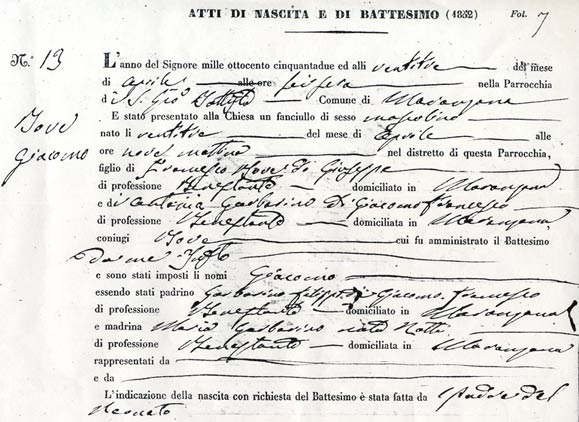 ATTI DI NASCITA E DI BATTESIMO (1852) Fol. 7
N.° 13
L'anno del Signore mille ottocento cinquantadue ed alli ventitre del mese
di aprile alle ore sei sera nella Parrocchia
d S. Gio Battista Comune di Maranzana
E stato presentato alla Chiesa un fanciullo di sesso mascolino
Jove
Giacomo
nato li ventitre del mese di Aprile alle
ore nove mattina nel distretto di questa Parrocchia,
figlio di Francesco Jove di Giuseppe
di professione Benestante domiciliato in Maranzana
e di Antonia Garbarino di Giacomo Francesco
di professione Benestante domiciliata in Maranzana,
coniugi Jove cui fu amministrato il Battesimo
da me
e sono stati imposti li nomi Giacomo
essendo stati padrino Garbarino Filippo di Giacomo Francesco
di professione Benestante domiciliato in Maranzana
e madrina Maria Garbarino nata Notti
di professione Benestante domiciliata in Maranzana
rappresentati da
e da
L'indicazione della nascita con richiesta del Battesimo è stata fatta da Padre del
Neonato